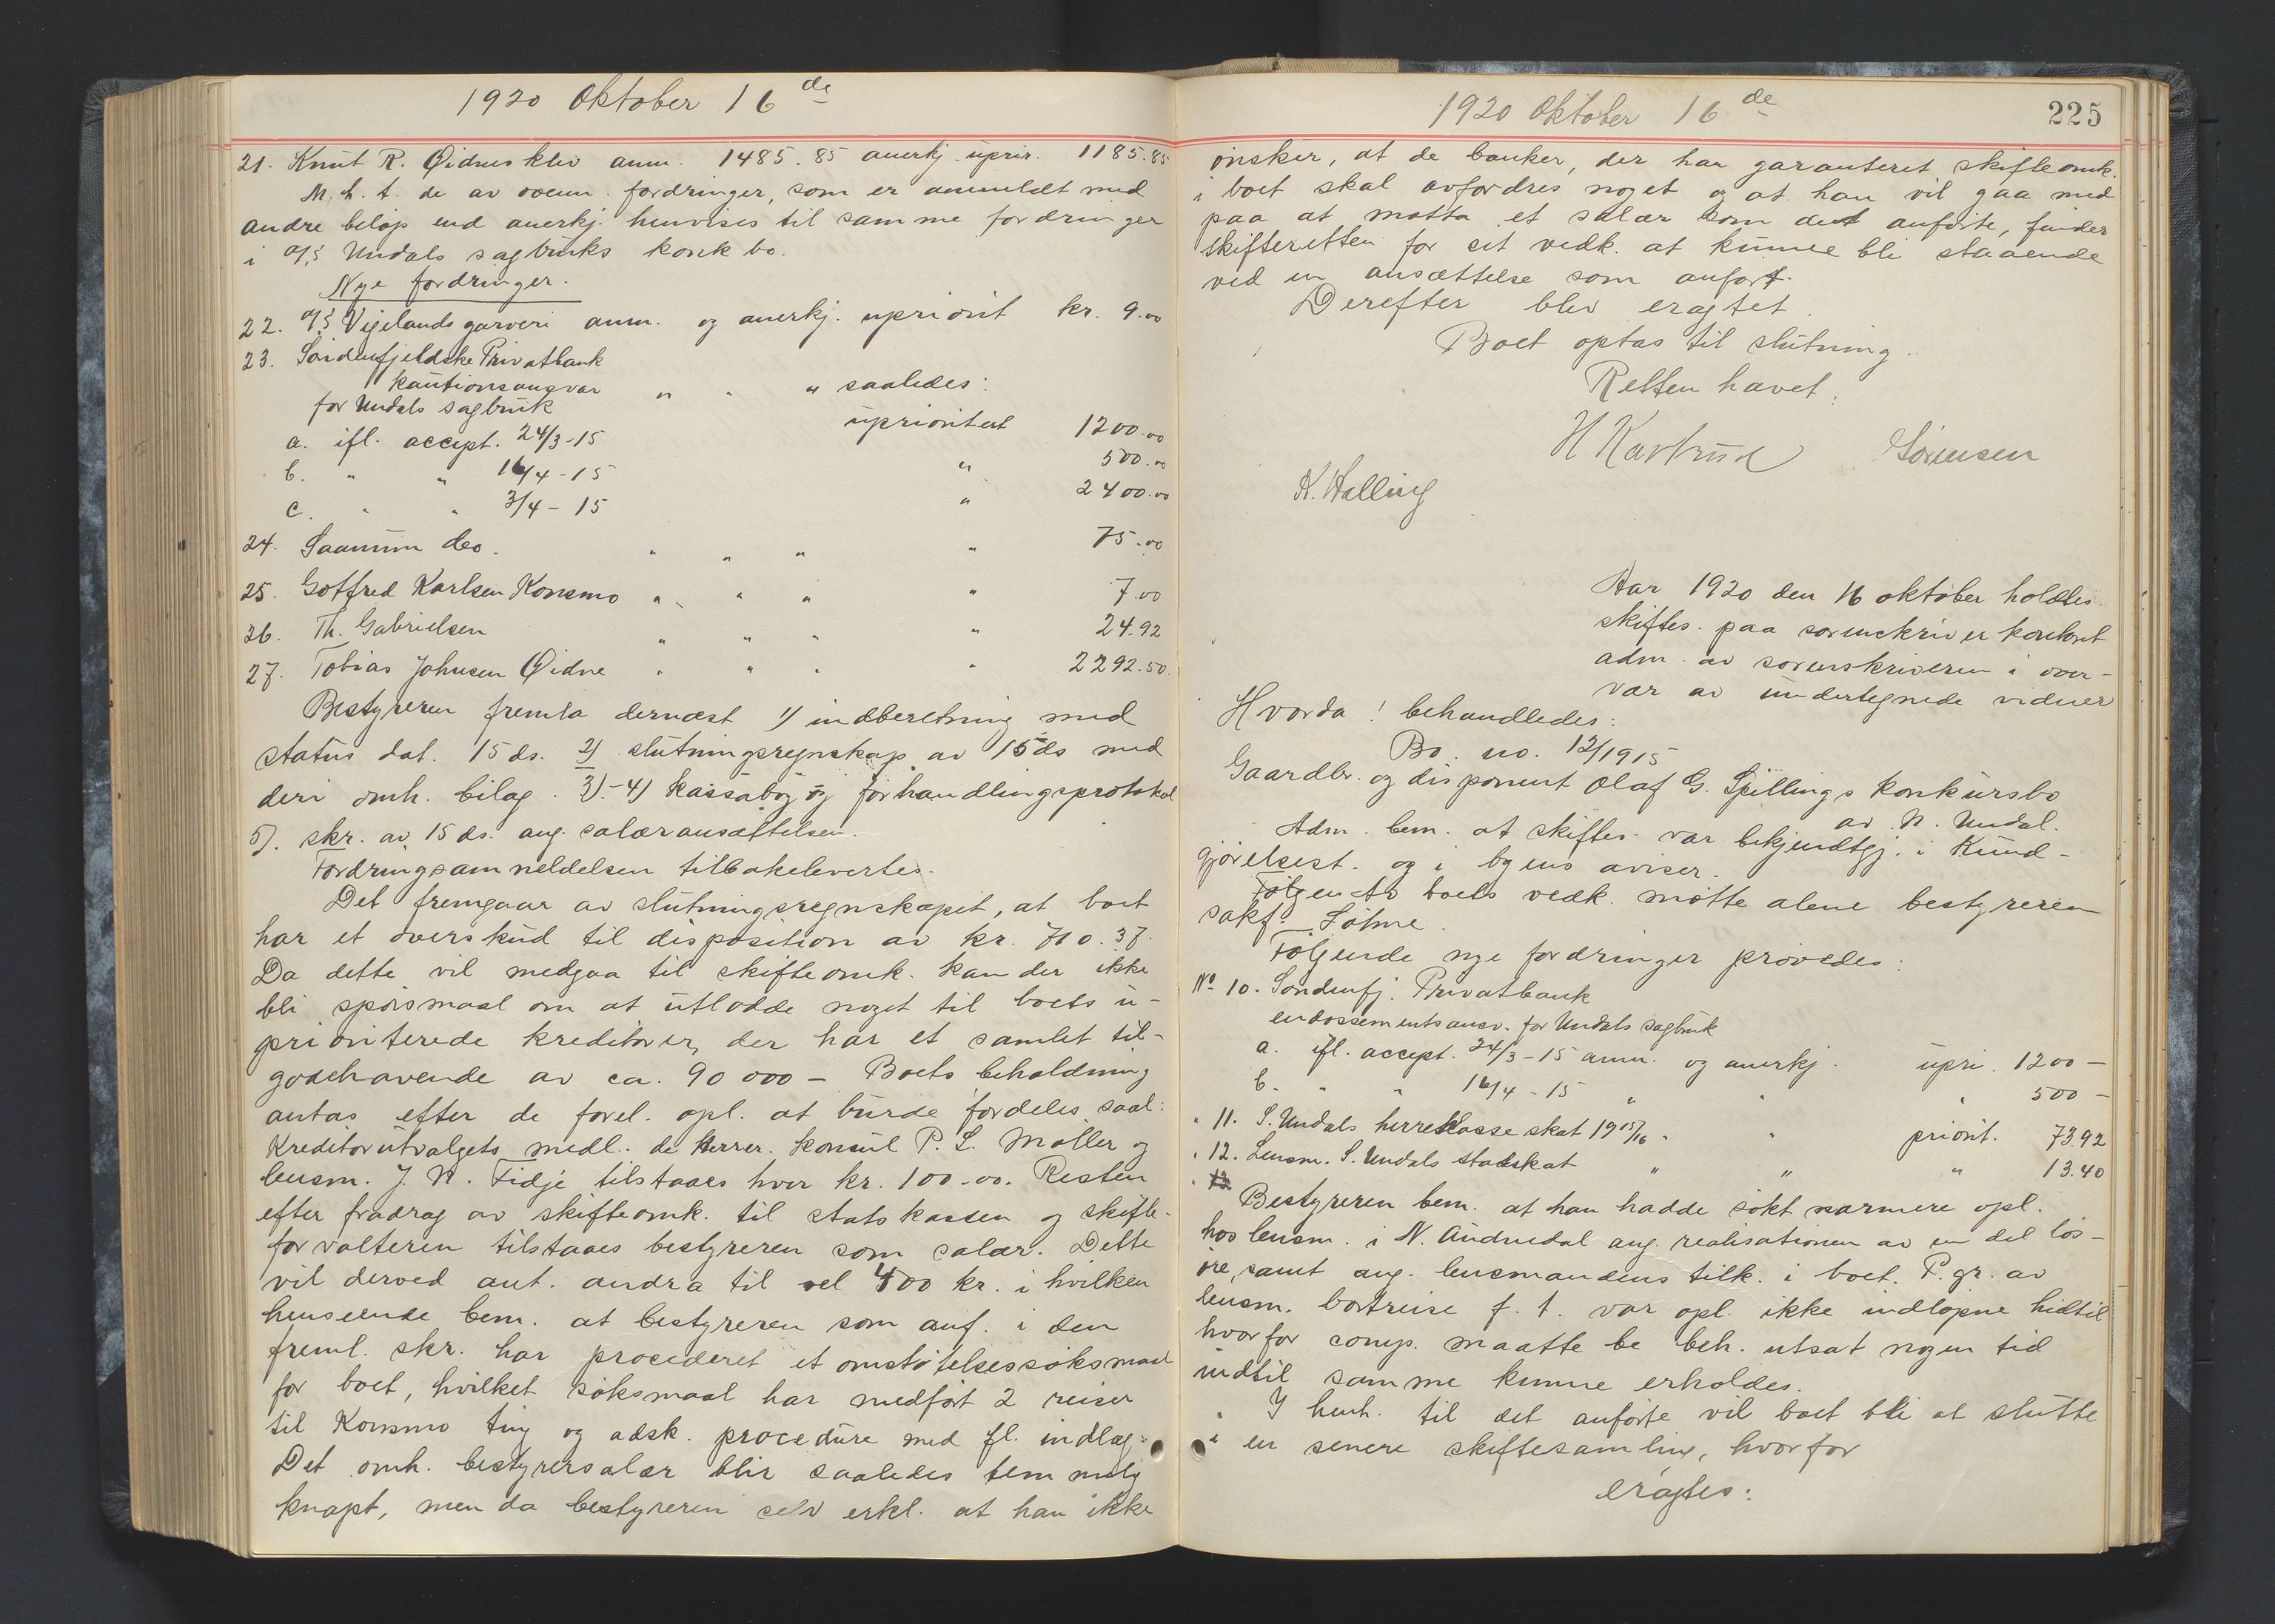 1920 Oktober 16de
21. Knut R. Øidneskleiv anm. 1485.85 anerkj. uprir. 1185.85
M. h. t. de av ovenn. fordringer, som er anmeldt med
andre beløp end anerkj. henvises til samme fordringer
i A/S Undals sagbruks konk bo.
Nye fordringer.
22. A/S Vigelands garveri anm. og anerkj. upriorit kr. 9.00
23. Søndenfjeldske Privatbank
kautionsansvar " " " saaledes:
for Undals sagbruk
a. ifl. accept. 24/3-15 uprioritert 1200.00
b. " " 16/4-15 " 500.00
c. " " 3/4-15 " 2400.00
24. Saanum do. " " " " 75.00
25. Gotfred Karlsen Konsmo " " " " 7.00
26. Th. Gabrielsen " " " " 24.92
27. Tobias Johnsen Øidne " " " " 2292.50
Bestyreren fremla dernæst 1) indberetning med
status dat. 15 ds. 2) slutningsregnskap av 15 ds med
deri omh. bilag. 3)-4) kassabog og forhandlingsprotokol
5). skr. av 15 ds. ang. salæransættelsen.
Fordringsanmeldelsen tilbakelevertes.
Det fremgaar av slutningsregnskapet, at boet
har et overskud til disposition av kr. 710.37.
Da dette vil medgaa til skifteomk. kan der ikke
bli spørsmaal om at utlodde noget til boets u-
prioriterede kreditorer, der har et samlet til-
godehavende av ca. 90 000 - Boets beholdning
antas efter de forel. opl. at burde fordeles saal:
Kreditorutvalgets medl. de Herrer. konsul P. L. Møller og
lensm. J. N. Fidje tilstaaes hver kr. 100.00. Resten
efter fradrag av skifteomk. til statskassen og skifte-
forvalteren tilstaaes bestyreren som salær. Dette
vil derved ant. andra til vel 400 kr. i hvilken
henseende bem. at bestyreren som anf. i den
freml. skr. har procederet et omstøtelsessøksmaal
for boet, hvilket søksmaal har medført 2 reiser
til Konsmo ting og adsk. procedure med fl. indlæg.
Det omh. bestyrersalær blir saaledes temmelig
knapt, men da bestyreren selv erkl. at han ikke
1920 Oktober 16de
225
ønsker, at de banker, der har garanteret skifteomk.
i boet skal avfordres noget og at han vil gaa med
paa at motta et salær som det anførte, finder
skifteretten for sit vedk. at kunne bli staaende
ved en ansættelse som anført.
Derefter blev eragtet.
Boet optas til slutning.
Retten hævet.
H Kavtrud Sørensen
K. Halling
Aar 1920 den 16 oktober holdtes
skiftes. paa sorenskriverkontoret
adm. av sorenskriveren i over-
vær av undertegnede vidner
Hvorda! behandledes:
Bo. no. 12/1915
Gaardbr. og disponent Olaf G. Spillings konkursbo
av N. Undal.
Adm. bem. at skiftes. var bekjendtgj. i Kund-
gjørelsest. og i byens aviser.
Følgen Av boets vedk. møtte alene bestyreren
sakf. Løhne.
Følgende nye fordringer prøvedes:
No 10. Søndenfj. Privatbank
endossementsansv. for Undals sagbruk
a. ifl. accept. 24/3-15 anm. og anerkj. upri. 1200 -
b. " " 16/4-15 " " " 500 -
" 11. S. Undals herredskasse skat 1915/16 " " priorit. 73.92
" 12. Lensm. S. Undals statsskat " " " 13.40
" 13
Bestyreren bem. at han hadde søkt nærmere opl.
hos lensm. i N. Audnedal ang. realisationen av en del løs-
øre, samt ang. lensmandens tilk. i boet. P. gr. av
lensm. bortreise f. t. var opl. ikke indløpne hidtil
hvorfor comp. maatte be beh. utsat nogen tid
indtil samme kunne erholdes.
I henh. til det anførte vil boet bli at slutte
i en senere skiftesamling, hvorfor
eragtes: